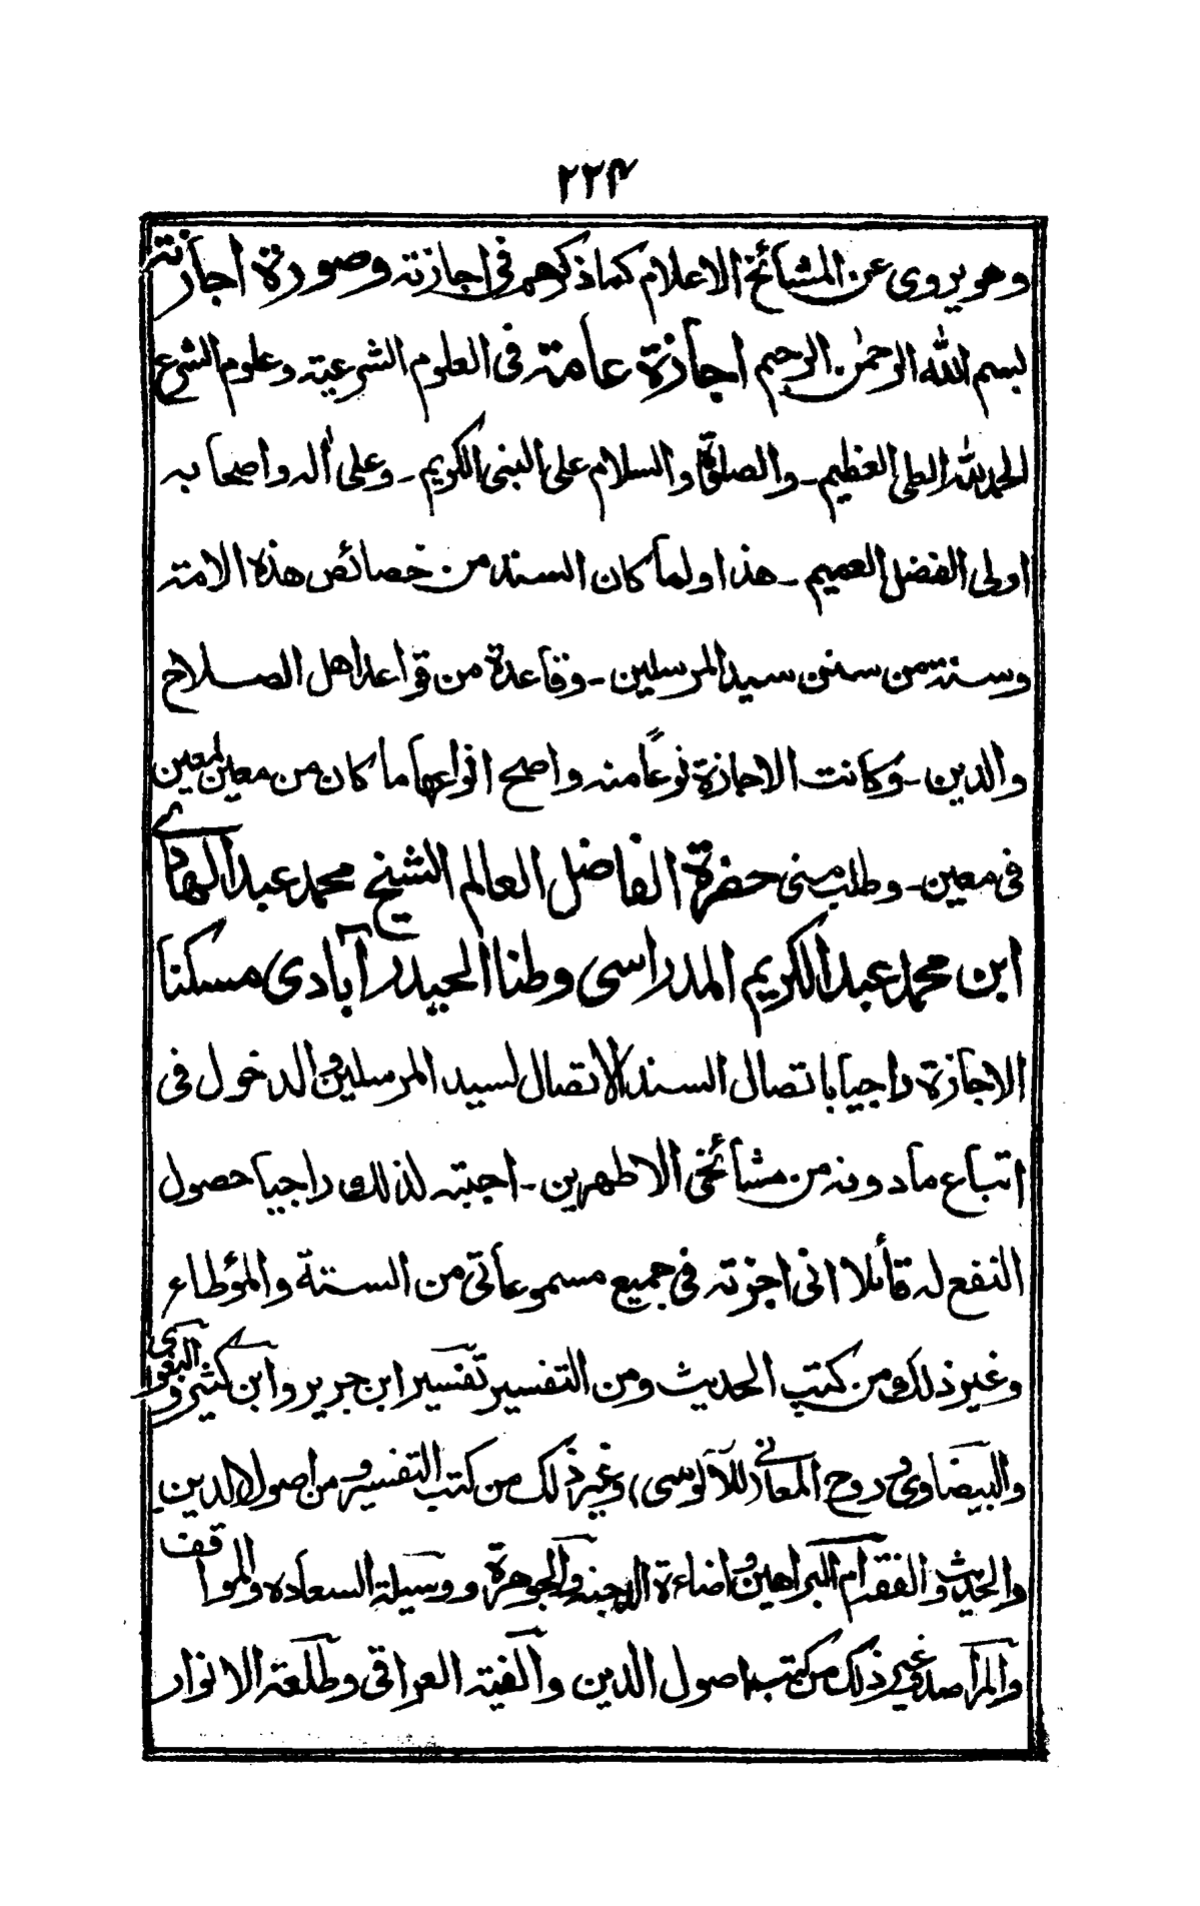 ٢٢٤
وهو يروى عن المشائخ الاعلام كما ذكرهم فى اجازته وصورة اجازته
بسم الله الرحمٰن الرحيم اجازة عامة فى العلوم الشرعية وعلوم الشرع
الحمد لله العلى العظيم ـ والصلوٰة والسلام على النبى الكريم ـ وعلى أله واصحابه
اولى الفضل العميم ـ هذا ولما كان السند من خصائص هذه الامة
وسنة من سنن سيد المرسلين ـ وقاعدة من قواعد اهل الصلاح
والدين ـ وكانت الاجازة نوعًا منه واصح انواعها ما كان من معين لمعين
فى معين ـ وطلب منى حضرة الفاضل العالم الشيخ محمد عبد الهادى
ابن محمد عبد الكريم المدراسى وطنا الحيدر آبادى مسكنا
الاجازة راجيا باتصال السند الاتصال لسيد المرسلين والدخول فى
اتباع مادونه من مشائخى الاطهرين ـ اجبته لذلك راجيا حصول
النفع له قائلا انى اجزته فى جميع مسموعاتى من الستة والمؤطاء
وغير ذلك من كتب الحديث ومن التفسير تفسير ابن جرير وابن كثير و البغوى
والبيضاوى و روح المعانى (للآلوسى) وغير ذلك من كتب التفسير و من اصول الدين
والحديث والفقه ام البراهين و اضاءة الدجنة والجوهرة ووسيلة السعاده والمواقف
والمراصد وغير ذلك من كتب اصول الدين والفية العراقى وطلعة الانوار